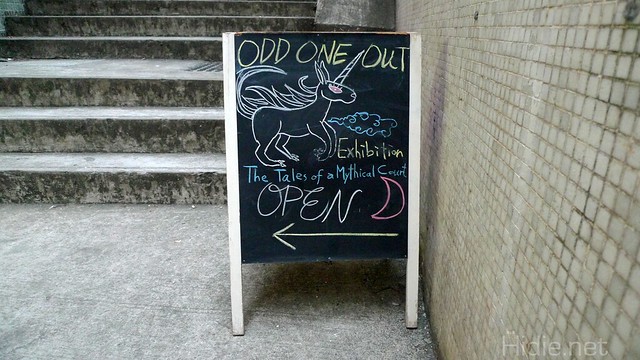 ODD ONE OUT
Exhibition
The Tales of a Mythical
OPEN
Hidie.net